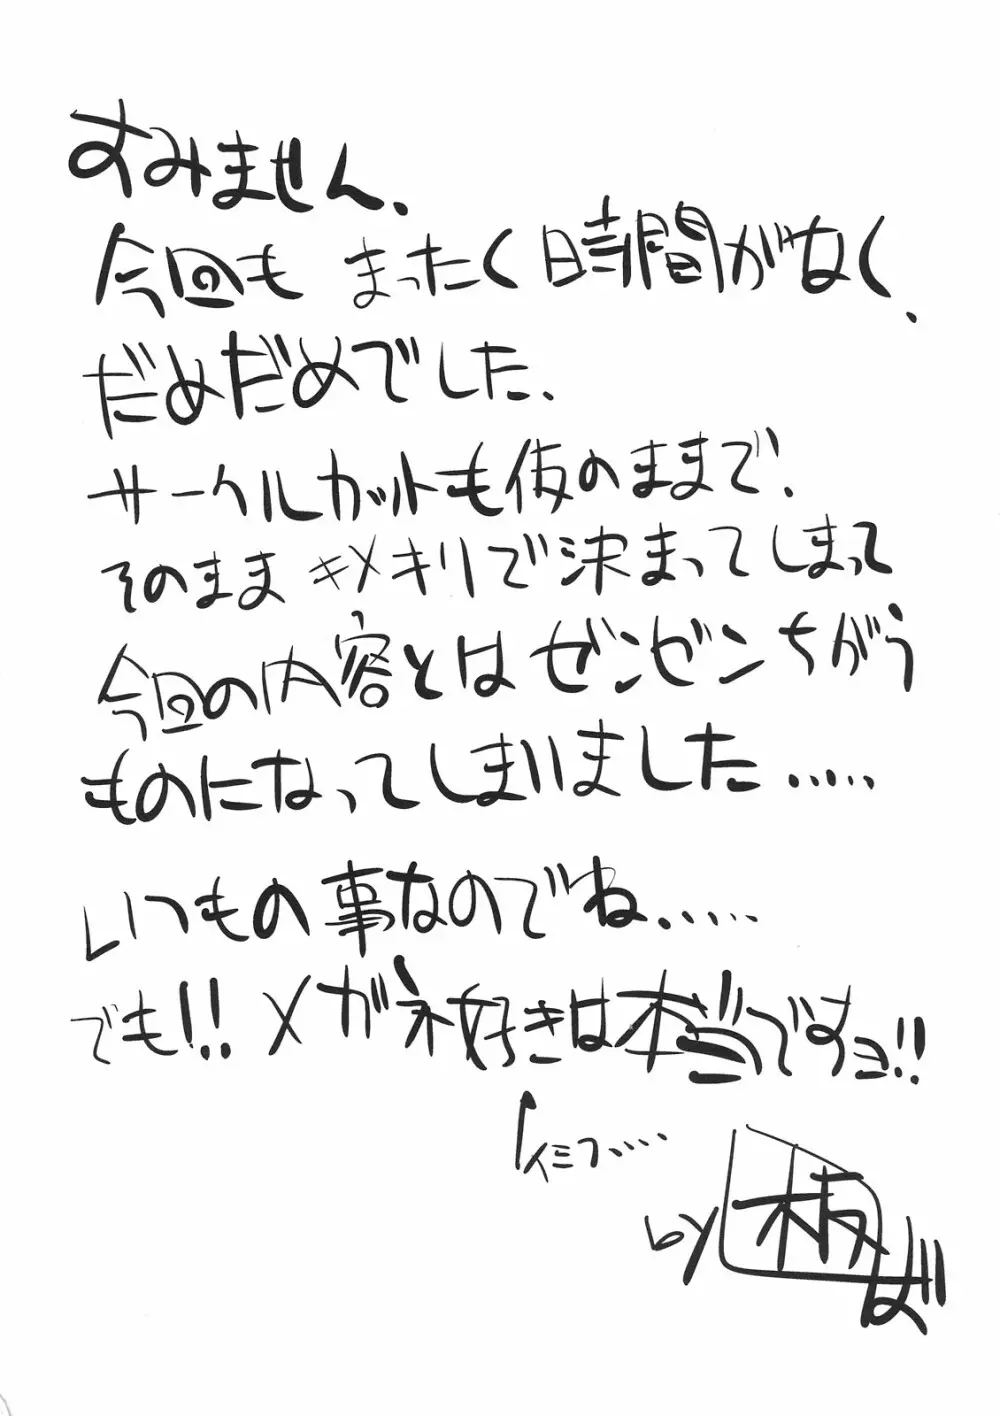 すみません.
今回も まったく時間がなく.
だめだめでした.
サークルカットも仮のままで.
そのまま キメキリで決まってしまって
今回の内容とは ゼンゼンちがう
ものになってしまいました.....
いつもの事なのでね.....
でも!! メガネ好きは本当ですョ!!
イミフ.....
by 板ば